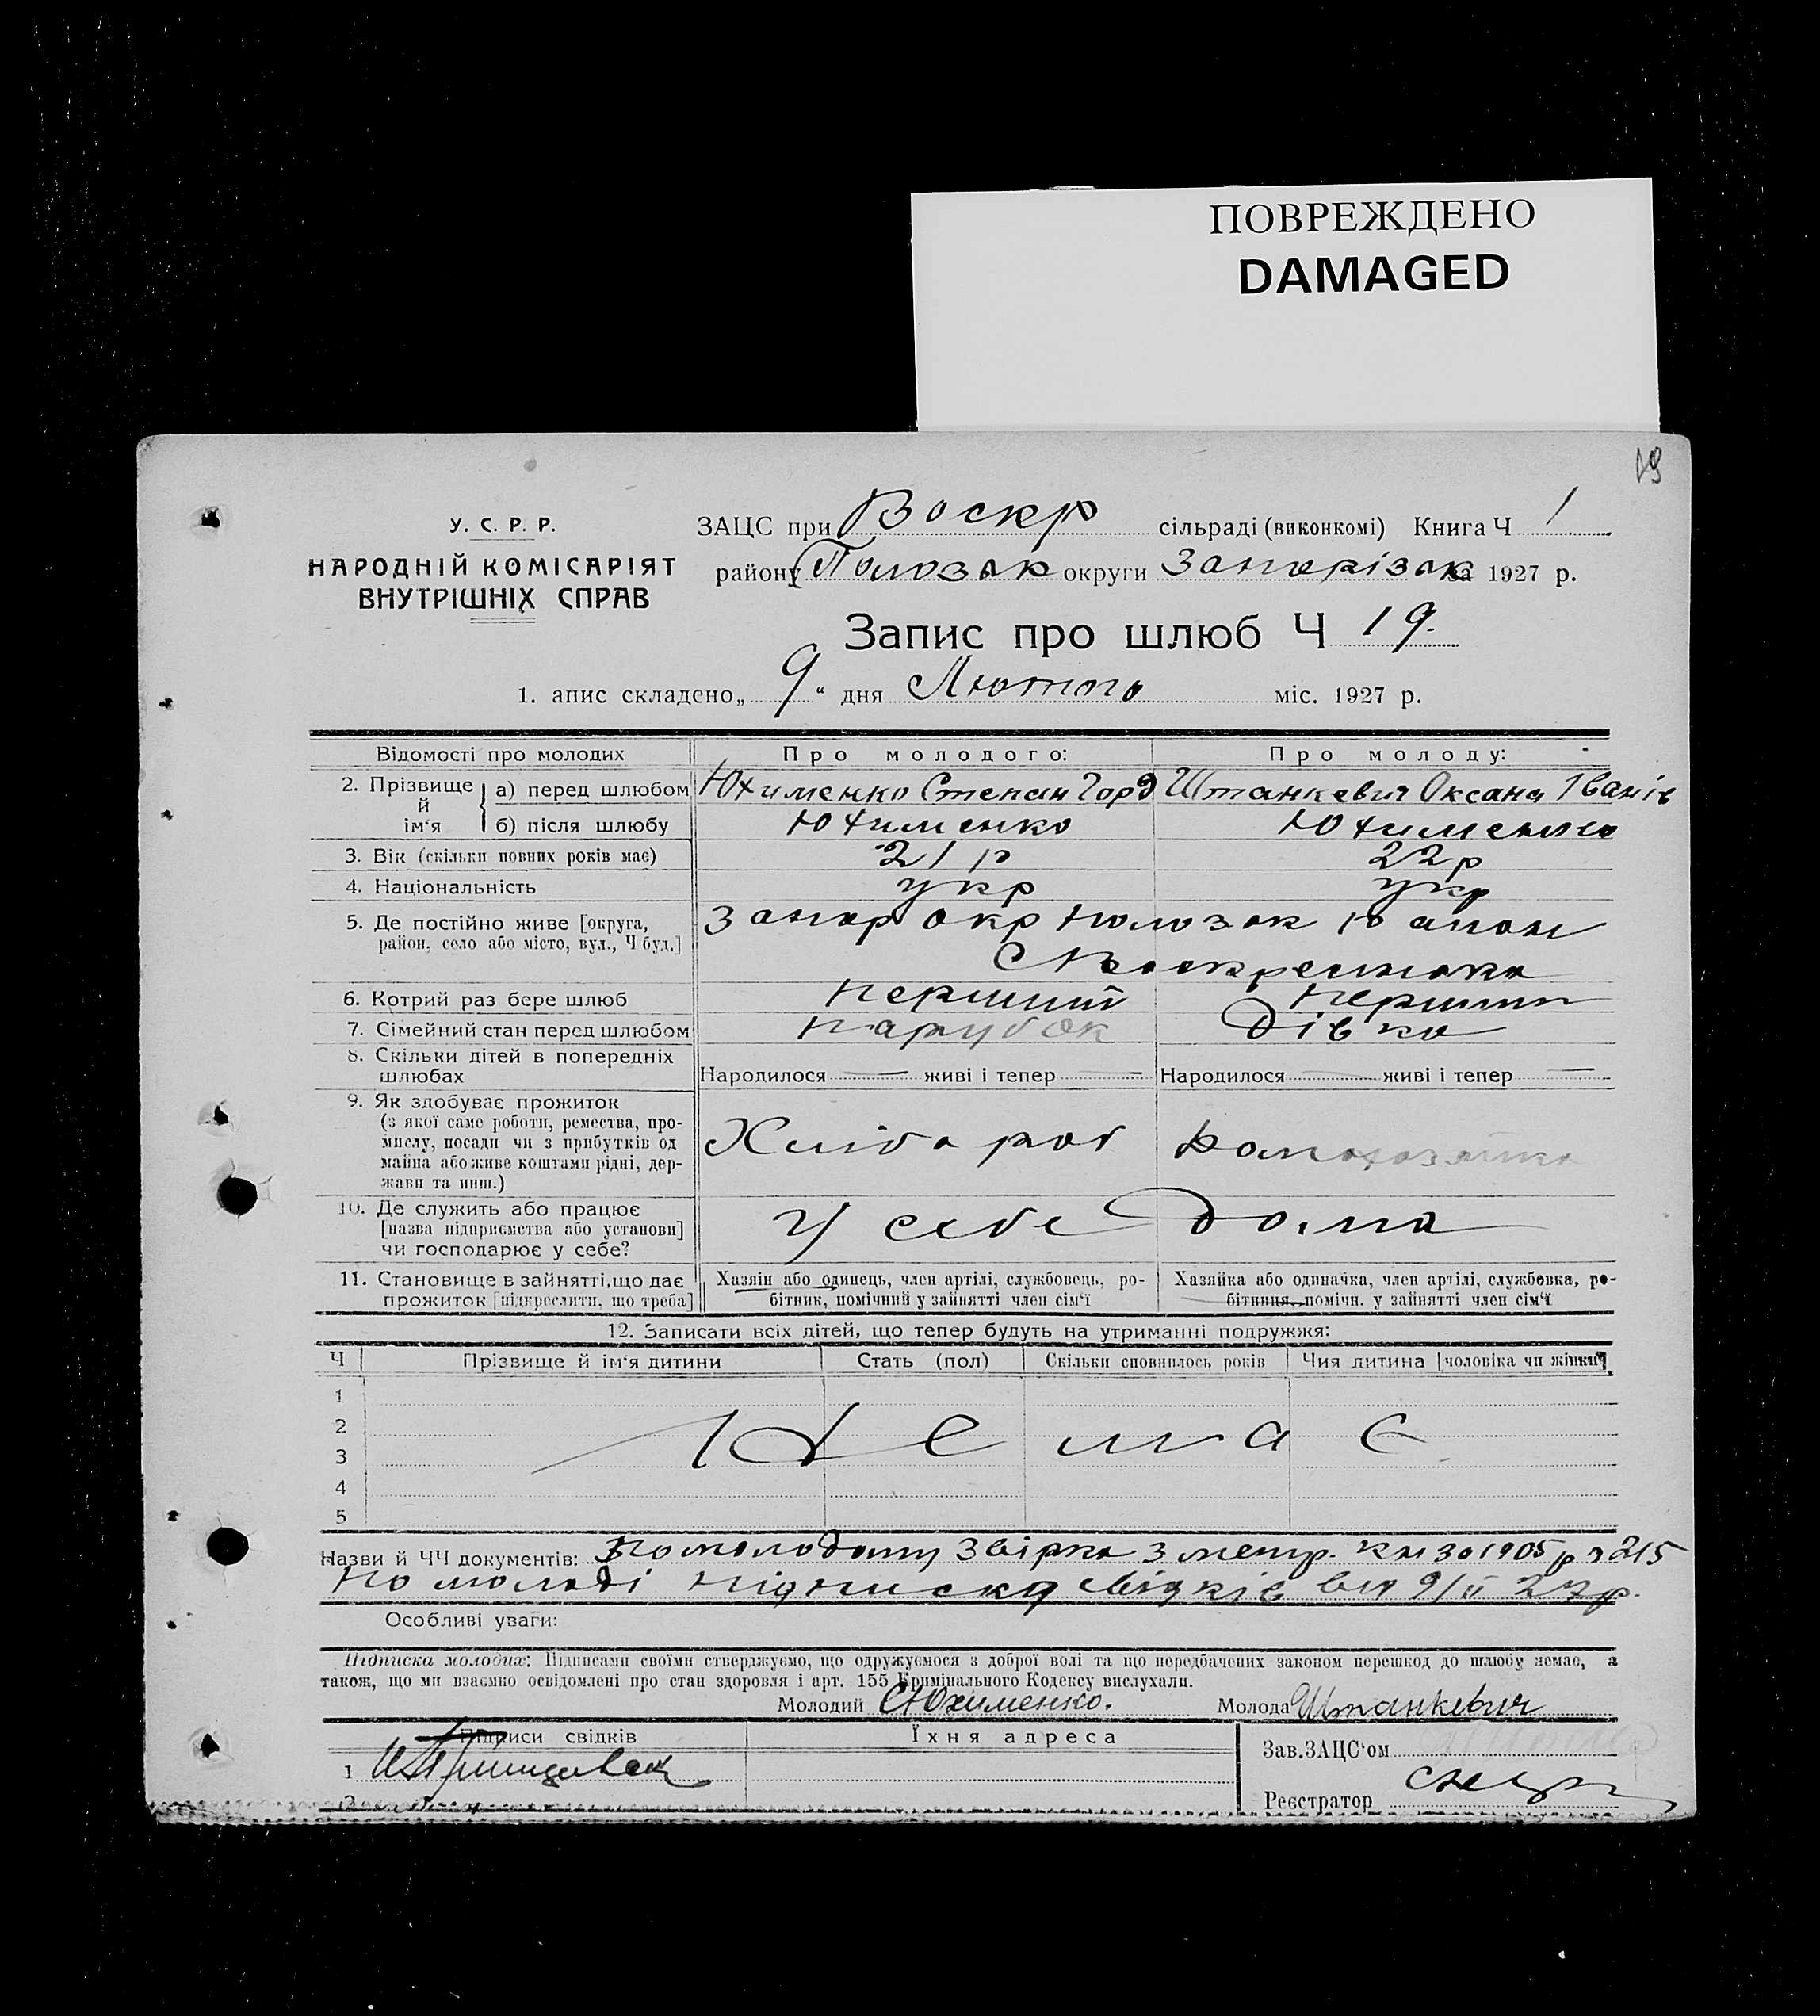 ПОВРЕЖДЕНО
DAMAGED
19
У. С. Р. Р.
НАРОДНІЙ КОМІСАРІЯТ
ВНУТРІШНІХ СПРАВ
ЗАЦС при Воскр сільраді (виконкомі) Книга Ч 1
району Полозьк округи Запорізьк за 1927 р.
Запис про шлюб Ч 19.
1. апис складено „9“ дня Лютого міс. 1927 р.
Відомості про молодих Про молодого: Про молоду:
2. Прізвище й ім‘я а) перед шлюбом Юхименко Степан Горд Штанкевич Оксана Іванів
б) після шлюбу Юхименко Юхименко
3. Вік (скільки повних років має) 21 р 22 р
4. Національність укр укр
5. Де постійно живе [округа, район, село або місто, вул., Ч буд.] Запор окр Полозьк району
С Воскресенка
6. Котрий раз бере шлюб перший перший
7. Сімейний стан перед шлюбом парубок дівка
8. Скільки дітей в попередніх шлюбах Народилося — живі і тепер — Народилося — живі і тепер —
9. Як здобуває прожиток
(з якої саме роботи, ремества, про-
мислу, посади чи з прибутків од
майна або живе коштами рідні, дер-
жави та инш.) Хлібороб Домохозяйка
10. Де служить або працює
[назва підприємства або установи]
чи господарює у себе? У себе дома
11. Становище в зайнятті, що дає
прожиток [підкреслити, що треба]
Хазяін або одинець, член артілі, службовець, ро-
бітник, помічний у зайнятті член сім‘ї
Хазяйка або одиначка, член артілі, службовка, ро-
бітниця, помічн. у зайнятті член сім‘ї
12. Записати всіх дітей, що тепер будуть на утриманні подружжя:
Ч Прізвище й ім‘я дитини Стать (пол) Скільки сповнилось років Чия дитина [чоловіка чи жінки]
1
2
3
4
5
Немає
Назви й ЧЧ документів: По молодому звірка з метр. кн за 1905 р 215
По молоді підписка свідків від 9/ІІ 27 р.
Особливі уваги:
Підписка молодих: Підписами своїми стверджуємо, що одружуємося з доброї волі та що передбачених законом перешкод до шлюбу немає, а
також, що ми взаємно освідомлені про стан здоровля і арт. 155 Кримінального Кодексу вислухали.
Молодий С Юхименко. Молода Штанкевич
Підписи свідків Їхня адреса
Зав. ЗАЦС‘ом
1
Реєстратор